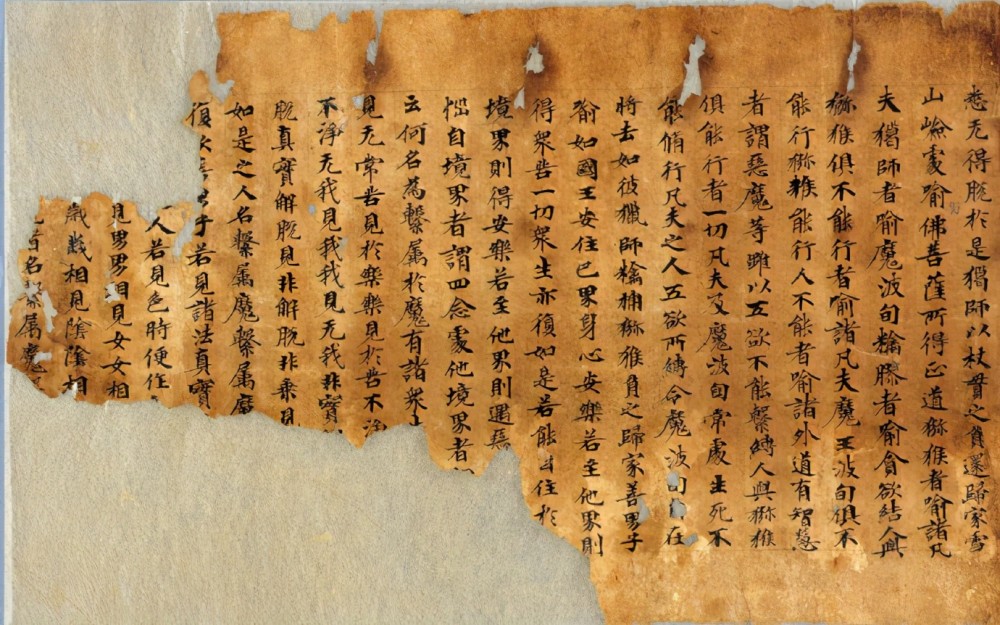 悉无得脫於是獦師以杖貫之負還歸家雪
山嶮處喻佛菩薩所得正道獼猴者喻諸凡
夫獦師者喻魔波旬黐膠者喻貪欲結人與
獼猴俱不能行者喻諸凡夫魔王波旬俱不
能行獼猴能行人不能者喻諸外道有智慧
者謂惡魔等雖以五欲不能繫縛人與獼猴
俱能行者一切凡夫及魔波旬常處生死不
能脩行凡夫之人五欲所縛令魔波旬在
將去如彼獵師黐捕獼猴負之歸家善男子
喻如國王安住己界身心安樂若至他界則
得衆苦一切衆生亦復如是若能自住於
境界則得安樂若至他界則遇惡
惱自境界者謂四念處他境界者
云何名為繫属於魔有諸衆
見无常苦見於樂樂見於苦不淨
不淨无我見我我見无我非實
脫真實解脫見非解脫非乘見
如是之人名繫属魔繫属魔
復次善男子若見諸法真實
人若見色時便住
見男男相見女女相
歲歲相見陰陰相
見者名繫属魔